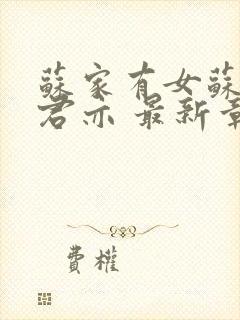 蘇家有女蘇
君亦 最新章
費權